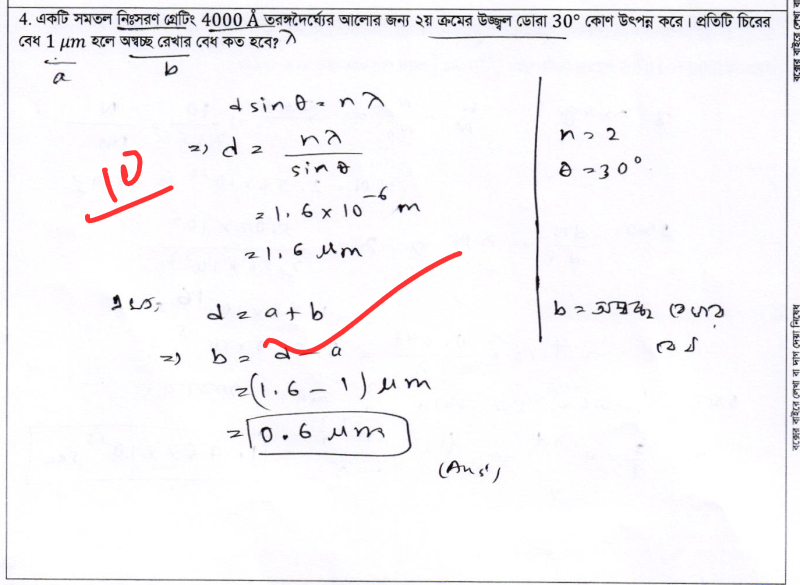 4. একটি সমতল নিঃসরণ গ্রেটিং 4000 Å তরঙ্গদৈর্ঘ্যের আলোর জন্য ২য় ক্রমের উজ্জ্বল ডোরা 30° কোণ উৎপন্ন করে। প্রতিটি চিরের
বেধ 1 μm হলে অস্বচ্ছ রেখার বেধ কত হবে? λ
a b
d sin θ = nλ
=> d = nλ / sin θ
= 1.6 × 10⁻⁶ m
= 1.6 μm
n = 2
θ = 30°
10
d = a + b
=> b = d - a
= (1.6 - 1) μm
= 0.6 μm
(Ans)
b = অস্বচ্ছ রেখার
বেধ
বক্সের বাইরে লেখা বা দাগ দেয়া নিষেধ
বক্সের বাইরে লেখা বা